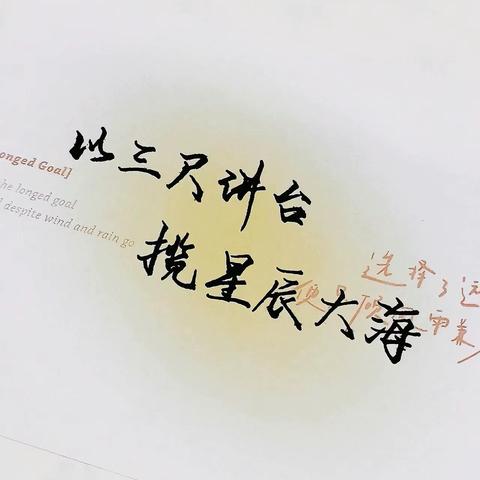 以三尺讲台
揽星辰大海
onged Goal]
he longed goal
despite wind and rain go
选择了远
便只顾风雨兼